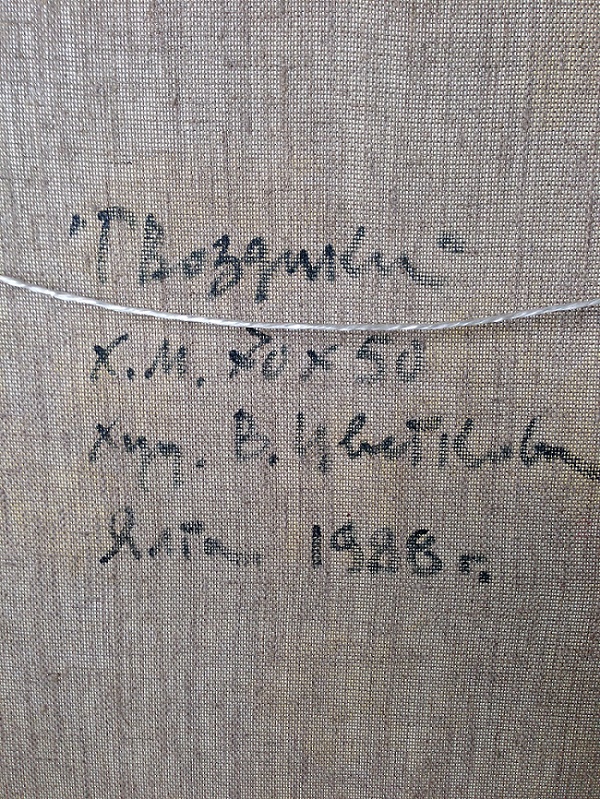 "Гвоздики"
х.м. 70х50
худ. В. Цветкова
Ялта 1988 г.